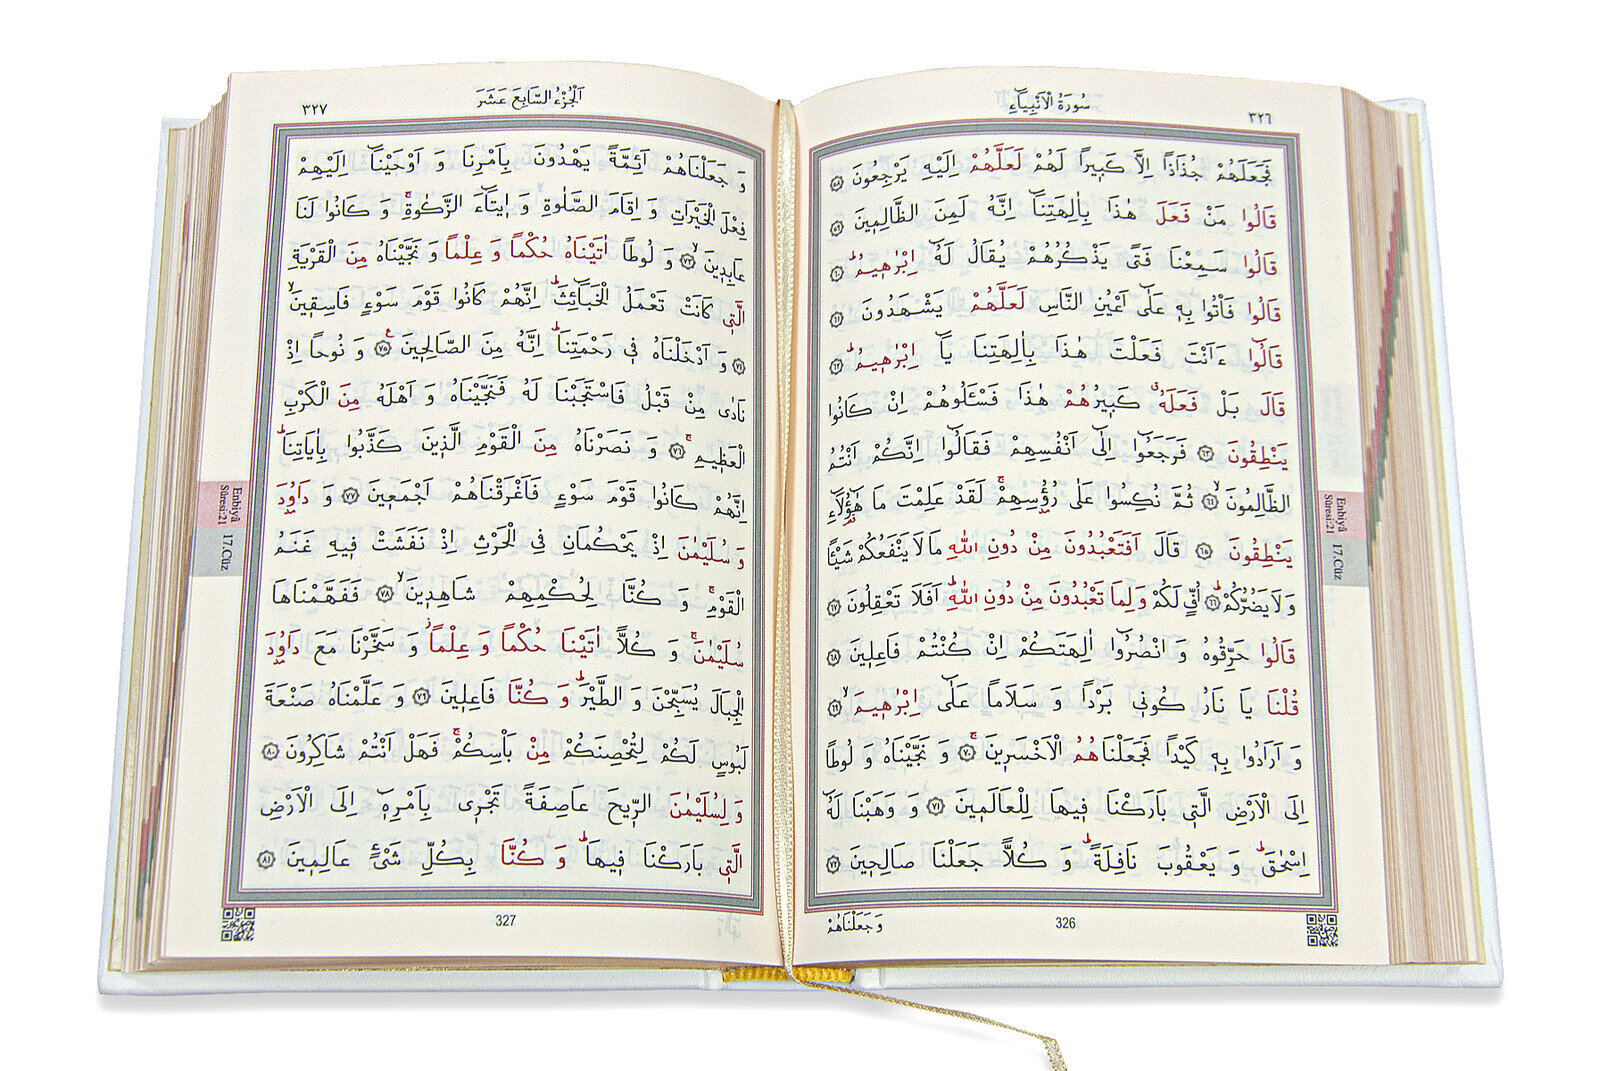 سُورَةُ الْاَنْبِيَاءِ
٣٢٦
فَجَعَلَهُمْ جُذَاذًا اِلَّا كَب۪يرًا لَهُمْ لَعَلَّهُمْ اِلَيْهِ يَرْجِعُونَ ﴿٥٨﴾
قَالُوا مَنْ فَعَلَ هٰذَا بِاٰلِهَتِنَٓا اِنَّهُ لَمِنَ الظَّالِم۪ينَ ﴿٥٩﴾
قَالُوا سَمِعْنَا فَتًى يَذْكُرُهُمْ يُقَالُ لَهُٓ اِبْرٰه۪يمُۜ ﴿٦٠﴾
قَالُوا فَأْتُوا بِه۪ عَلٰٓى اَعْيُنِ النَّاسِ لَعَلَّهُمْ يَشْهَدُونَ ﴿٦١﴾
قَالُٓوا ءَاَنْتَ فَعَلْتَ هٰذَا بِاٰلِهَتِنَا يَٓا اِبْرٰه۪يمُۜ ﴿٦٢﴾
قَالَ بَلْ فَعَلَهُۗ كَب۪يرُهُمْ هٰذَا فَسْـَٔلُوهُمْ اِنْ كَانُوا
يَنْطِقُونَ ﴿٦٣﴾ فَرَجَعُٓوا اِلٰٓى اَنْفُسِهِمْ فَقَالُٓوا اِنَّكُمْ اَنْتُمُ
الظَّالِمُونَۙ ﴿٦٤﴾ ثُمَّ نُكِسُوا عَلٰى رُؤُ۫سِهِمْۚ لَقَدْ عَلِمْتَ مَا هٰٓؤُ۬لَٓاءِ
يَنْطِقُونَ ﴿٦٥﴾ قَالَ اَفَتَعْبُدُونَ مِنْ دُونِ اللّٰهِ مَا لَا يَنْفَعُكُمْ شَيْـًٔا
وَ لَا يَضُرُّكُمْۜ ﴿٦٦﴾ اُفٍّ لَكُمْ وَ لِمَا تَعْبُدُونَ مِنْ دُونِ اللّٰهِۜ اَفَلَا تَعْقِلُونَ ﴿٦٧﴾
قَالُوا حَرِّقُوهُ وَ انْصُرُٓوا اٰلِهَتَكُمْ اِنْ كُنْتُمْ فَاعِل۪ينَ ﴿٦٨﴾
قُلْنَا يَا نَارُ كُون۪ي بَرْدًا وَ سَلَامًا عَلٰٓى اِبْرٰه۪يمَۙ ﴿٦٩﴾
وَ اَرَادُوا بِه۪ كَيْدًا فَجَعَلْنَاهُمُ الْاَخْسَر۪ينَۚ ﴿٧٠﴾ وَ نَجَّيْنَاهُ وَ لُوطًا
اِلَى الْاَرْضِ الَّت۪ي بَارَكْنَا ف۪يهَا لِلْعَالَم۪ينَ ﴿٧١﴾ وَ وَهَبْنَا لَهُٓ
اِسْحٰقَۜ وَ يَعْقُوبَ نَافِلَةًۜ وَ كُلًّا جَعَلْنَا صَالِح۪ينَ ﴿٧٢﴾
وَ جَعَلْنَاهُمْ
326
Enbiyâ
Sûresi:21
17.Cüz
اَلْجُزْءُ السَّابِعَ عَشَرَ
٣٢٧
وَ جَعَلْنَاهُمْ اَئِمَّةً يَهْدُونَ بِاَمْرِنَا وَ اَوْحَيْنَٓا اِلَيْهِمْ
فِعْلَ الْخَيْرَاتِ وَ اِقَامَ الصَّلٰوةِ وَ ا۪يتَٓاءَ الزَّكٰوةِۚ وَ كَانُوا لَنَا
عَابِد۪ينَۙ ﴿٧٣﴾ وَ لُوطًا اٰتَيْنَاهُ حُكْمًا وَ عِلْمًا وَ نَجَّيْنَاهُ مِنَ الْقَرْيَةِ
الَّت۪ي كَانَتْ تَعْمَلُ الْخَبَٓائِثَۜ اِنَّهُمْ كَانُوا قَوْمَ سَوْءٍ فَاسِق۪ينَۙ
﴿٧٤﴾ وَ اَدْخَلْنَاهُ ف۪ي رَحْمَتِنَاۜ اِنَّهُ مِنَ الصَّالِح۪ينَ۟ ﴿٧٥﴾ وَ نُوحًا اِذْ
نَادٰى مِنْ قَبْلُ فَاسْتَجَبْنَا لَهُ فَنَجَّيْنَاهُ وَ اَهْلَهُ مِنَ الْكَرْبِ
الْعَظ۪يمِۚ ﴿٧٦﴾ وَ نَصَرْنَاهُ مِنَ الْقَوْمِ الَّذ۪ينَ كَذَّبُوا بِاٰيَاتِنَاۜ
اِنَّهُمْ كَانُوا قَوْمَ سَوْءٍ فَاَغْرَقْنَاهُمْ اَجْمَع۪ينَ ﴿٧٧﴾ وَ دَاوُ۫دَ
وَ سُلَيْمٰنَ اِذْ يَحْكُمَانِ فِي الْحَرْثِ اِذْ نَفَشَتْ ف۪يهِ غَنَمُ
الْقَوْمِۚ وَ كُنَّا لِحُكْمِهِمْ شَاهِد۪ينَۙ ﴿٧٨﴾ فَفَهَّمْنَاهَا
سُلَيْمٰنَۚ وَ كُلًّا اٰتَيْنَا حُكْمًا وَ عِلْمًاۘ وَ سَخَّرْنَا مَعَ دَاوُ۫دَ
الْجِبَالَ يُسَبِّحْنَ وَ الطَّيْرَۜ وَ كُنَّا فَاعِل۪ينَ ﴿٧٩﴾ وَ عَلَّمْنَاهُ صَنْعَةَ
لَبُوسٍ لَكُمْ لِتُحْصِنَكُمْ مِنْ بَأْسِكُمْۚ فَهَلْ اَنْتُمْ شَاكِرُونَ ﴿٨٠﴾
وَ لِسُلَيْمٰنَ الرّ۪يحَ عَاصِفَةً تَجْر۪ي بِاَمْرِه۪ٓ اِلَى الْاَرْضِ
الَّت۪ي بَارَكْنَا ف۪يهَاۜ وَ كُنَّا بِكُلِّ شَيْءٍ عَالِم۪ينَ ﴿٨١﴾
327
Enbiyâ
Sûresi:21
17.Cüz